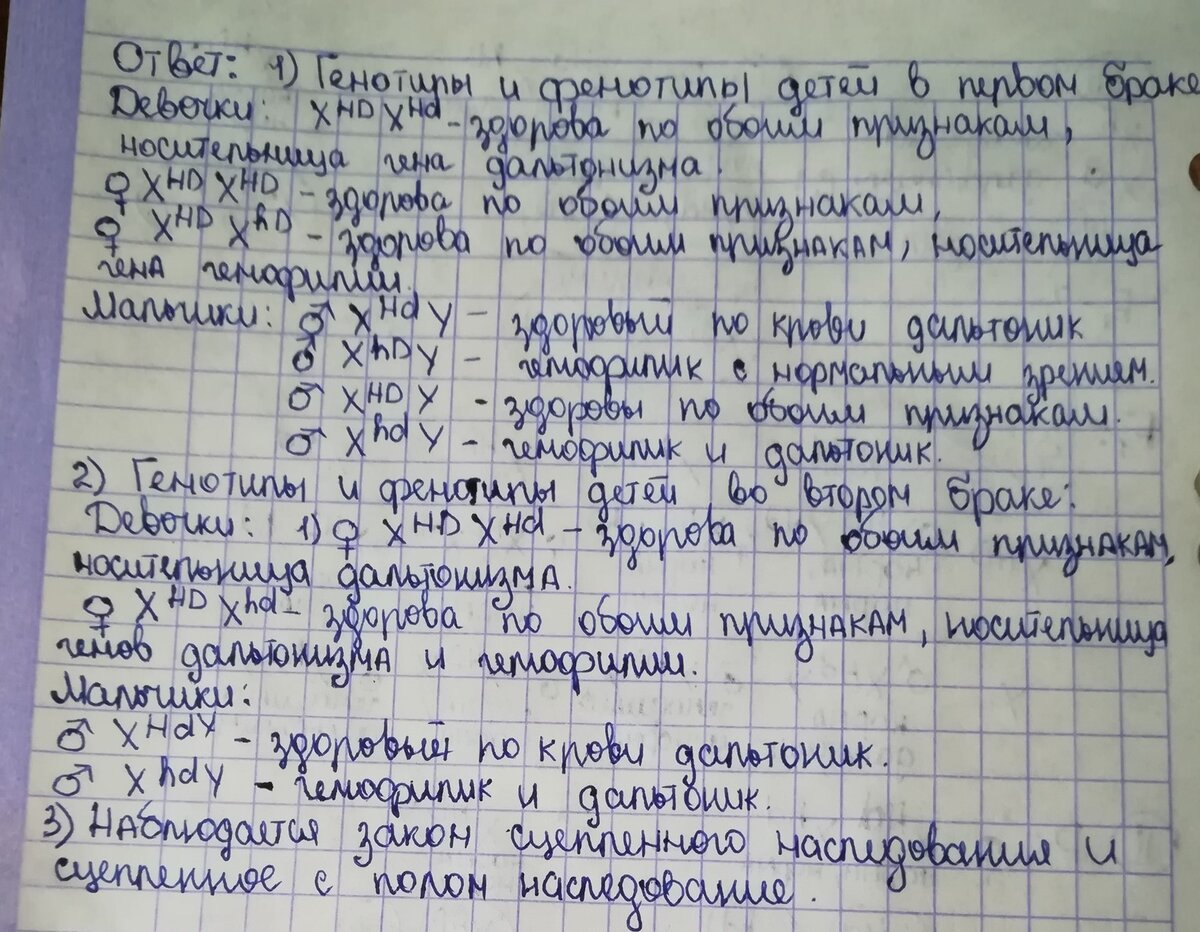 Ответ: 1) Генотипы и фенотипы детей в первом браке
Девочки: X^HD X^Hd - здорова по обоим признакам,
носительница гена дальтонизма.
♀ X^HD X^HD - здорова по обоим признакам,
♀ X^HD X^hD - здорова по обоим признакам, носительница
гена гемофилии.
Мальчики: ♂ X^Hd Y - здоровый по крови дальтоник
♂ X^hD Y - гемофилик с нормальным зрением.
♂ X^HD Y - здоровы по обоим признакам.
♂ X^hd Y - гемофилик и дальтоник.
2) Генотипы и фенотипы детей во втором браке:
Девочки: 1) ♀ X^HD X^Hd - здорова по обоим признакам,
носительница дальтонизма.
♀ X^HD X^hd - здорова по обоим признакам, носительница
генов дальтонизма и гемофилии.
Мальчики:
♂ X^Hd Y - здоровый по крови дальтоник.
♂ X^hd Y - гемофилик и дальтоник.
3) Наблюдается закон сцепленного наследования и
сцепленное с полом наследование.